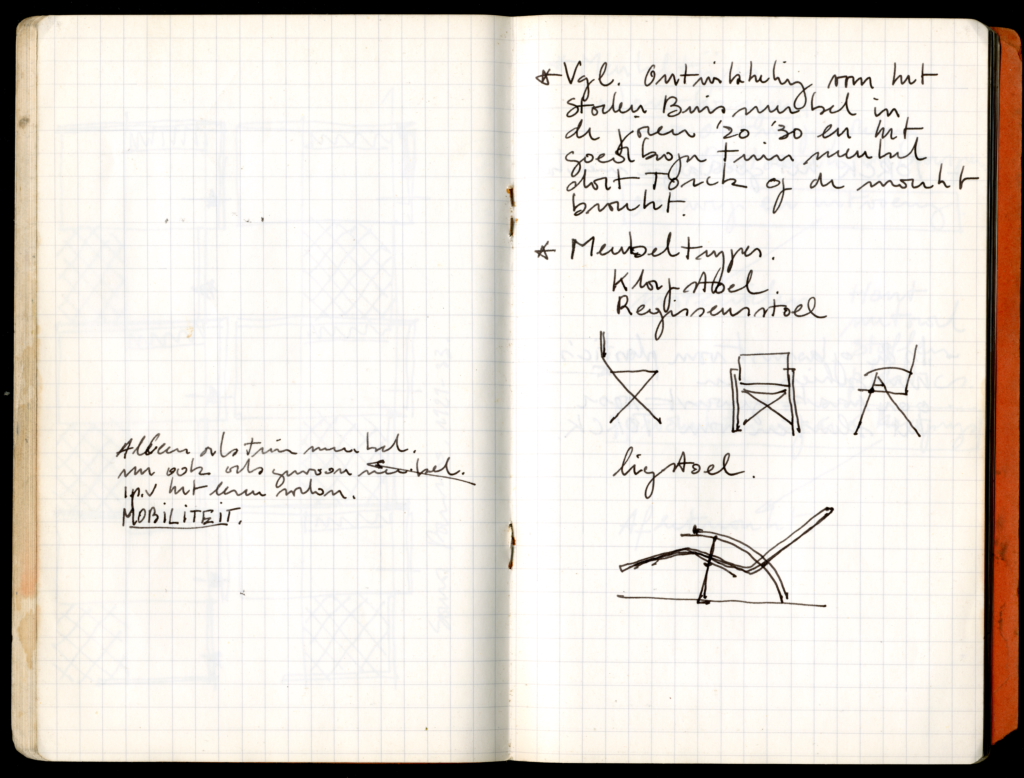 Alleen als tuin meubel.
nu ook als gewoon meubel.
i.p.v het leren salon.
MOBILITEIT.
* Vgl. Ontwikkeling van het
stalen Buismeubel in
de jaren '20 '30 en het
goedkope tuin meubel
dat Torck op de markt
bracht.
* Meubeltypes.
Klapstoel.
Regisseursstoel
ligstoel.